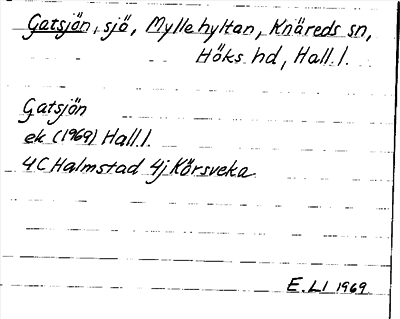 Gatsjön, sjö, Myllehyltan, Knäreds sn,
Höks hd, Hall.l.
Gatsjön
ek (1969) Hall.l.
4C Halmstad 4j Körsveka
E.LI 1969